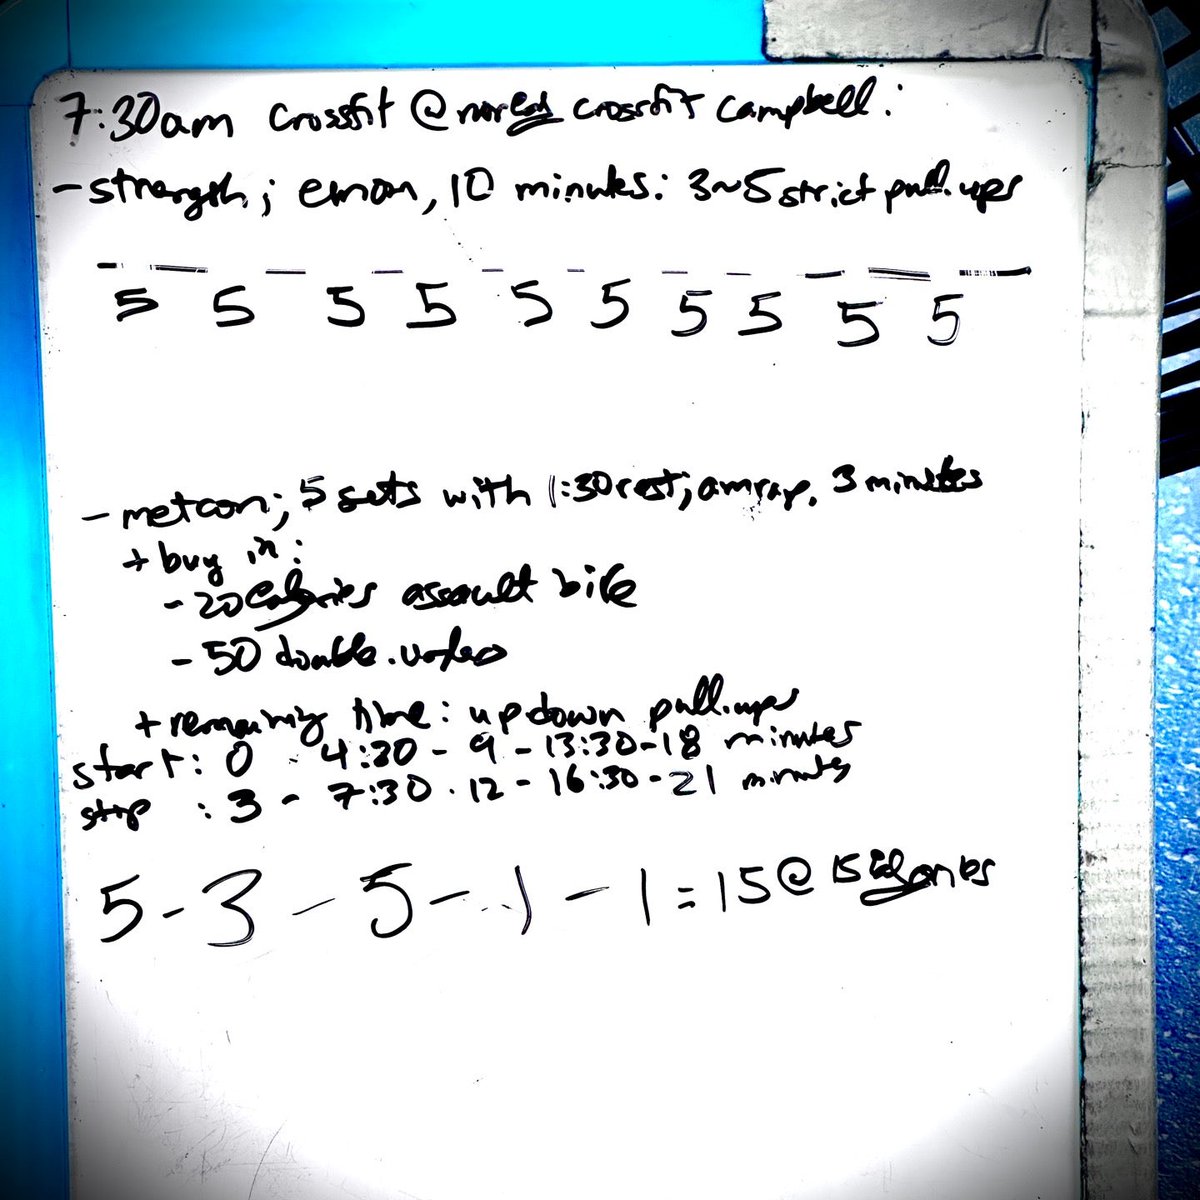 7:30am crossfit @ norcal crossfit campbell:
- strength; emom, 10 minutes: 3~5 strict pull-ups
5 5 5 5 5 5 5 5 5 5
- metcon; 5 sets with 1:30 rest; amrap, 3 minutes
+ buy in:
- 20 calories assault bike
- 50 double-unders
+ remaining time: up down pull-ups
start: 0 - 4:30 - 9 - 13:30 - 18 minutes
stop : 3 - 7:30 - 12 - 16:30 - 21 minutes
5 - 3 - 5 - 1 - 1 = 15 @ 15 calories